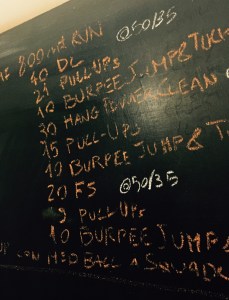 800mt RUN
40 DL @50/35
21 PULL-UPS
10 BURPEE JUMP & TUCK
30 HANG POWER CLEAN @
15 PULL-UPS
10 BURPEE JUMP & T
20 FS @50/35
9 PULL UPS
10 BURPEE JUMP &
CON MED BALL A SQUADR